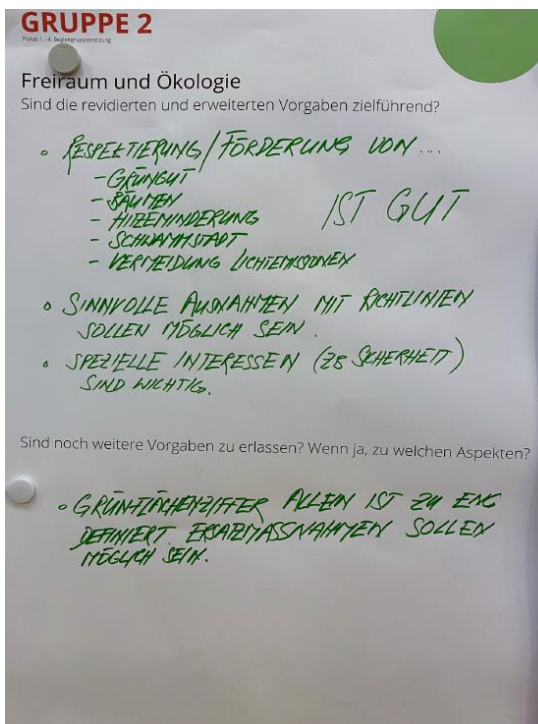 GRUPPE 2
Plakat 1 - 4. Begleitgruppensitzung
Freiraum und Ökologie
Sind die revidierten und erweiterten Vorgaben zielführend?
• RESPEKTIERUNG / FÖRDERUNG VON ...
- GRÜNGUT
- BÄUMEN
- HITZEMINDERUNG IST GUT
- SCHWAMMSTADT
- VERMEIDUNG LICHTEMISSIONEN
• SINNVOLLE AUSNAHMEN MIT RICHTLINIEN
SOLLEN MÖGLICH SEIN.
• SPEZIELLE INTERESSEN (ZB SICHERHEIT)
SIND WICHTIG.
Sind noch weitere Vorgaben zu erlassen? Wenn ja, zu welchen Aspekten?
• GRÜNFLÄCHENZIFFER ALLEIN IST ZU ENG
DEFINIERT. ERSATZMASSNAHMEN SOLLEN
MÖGLICH SEIN.